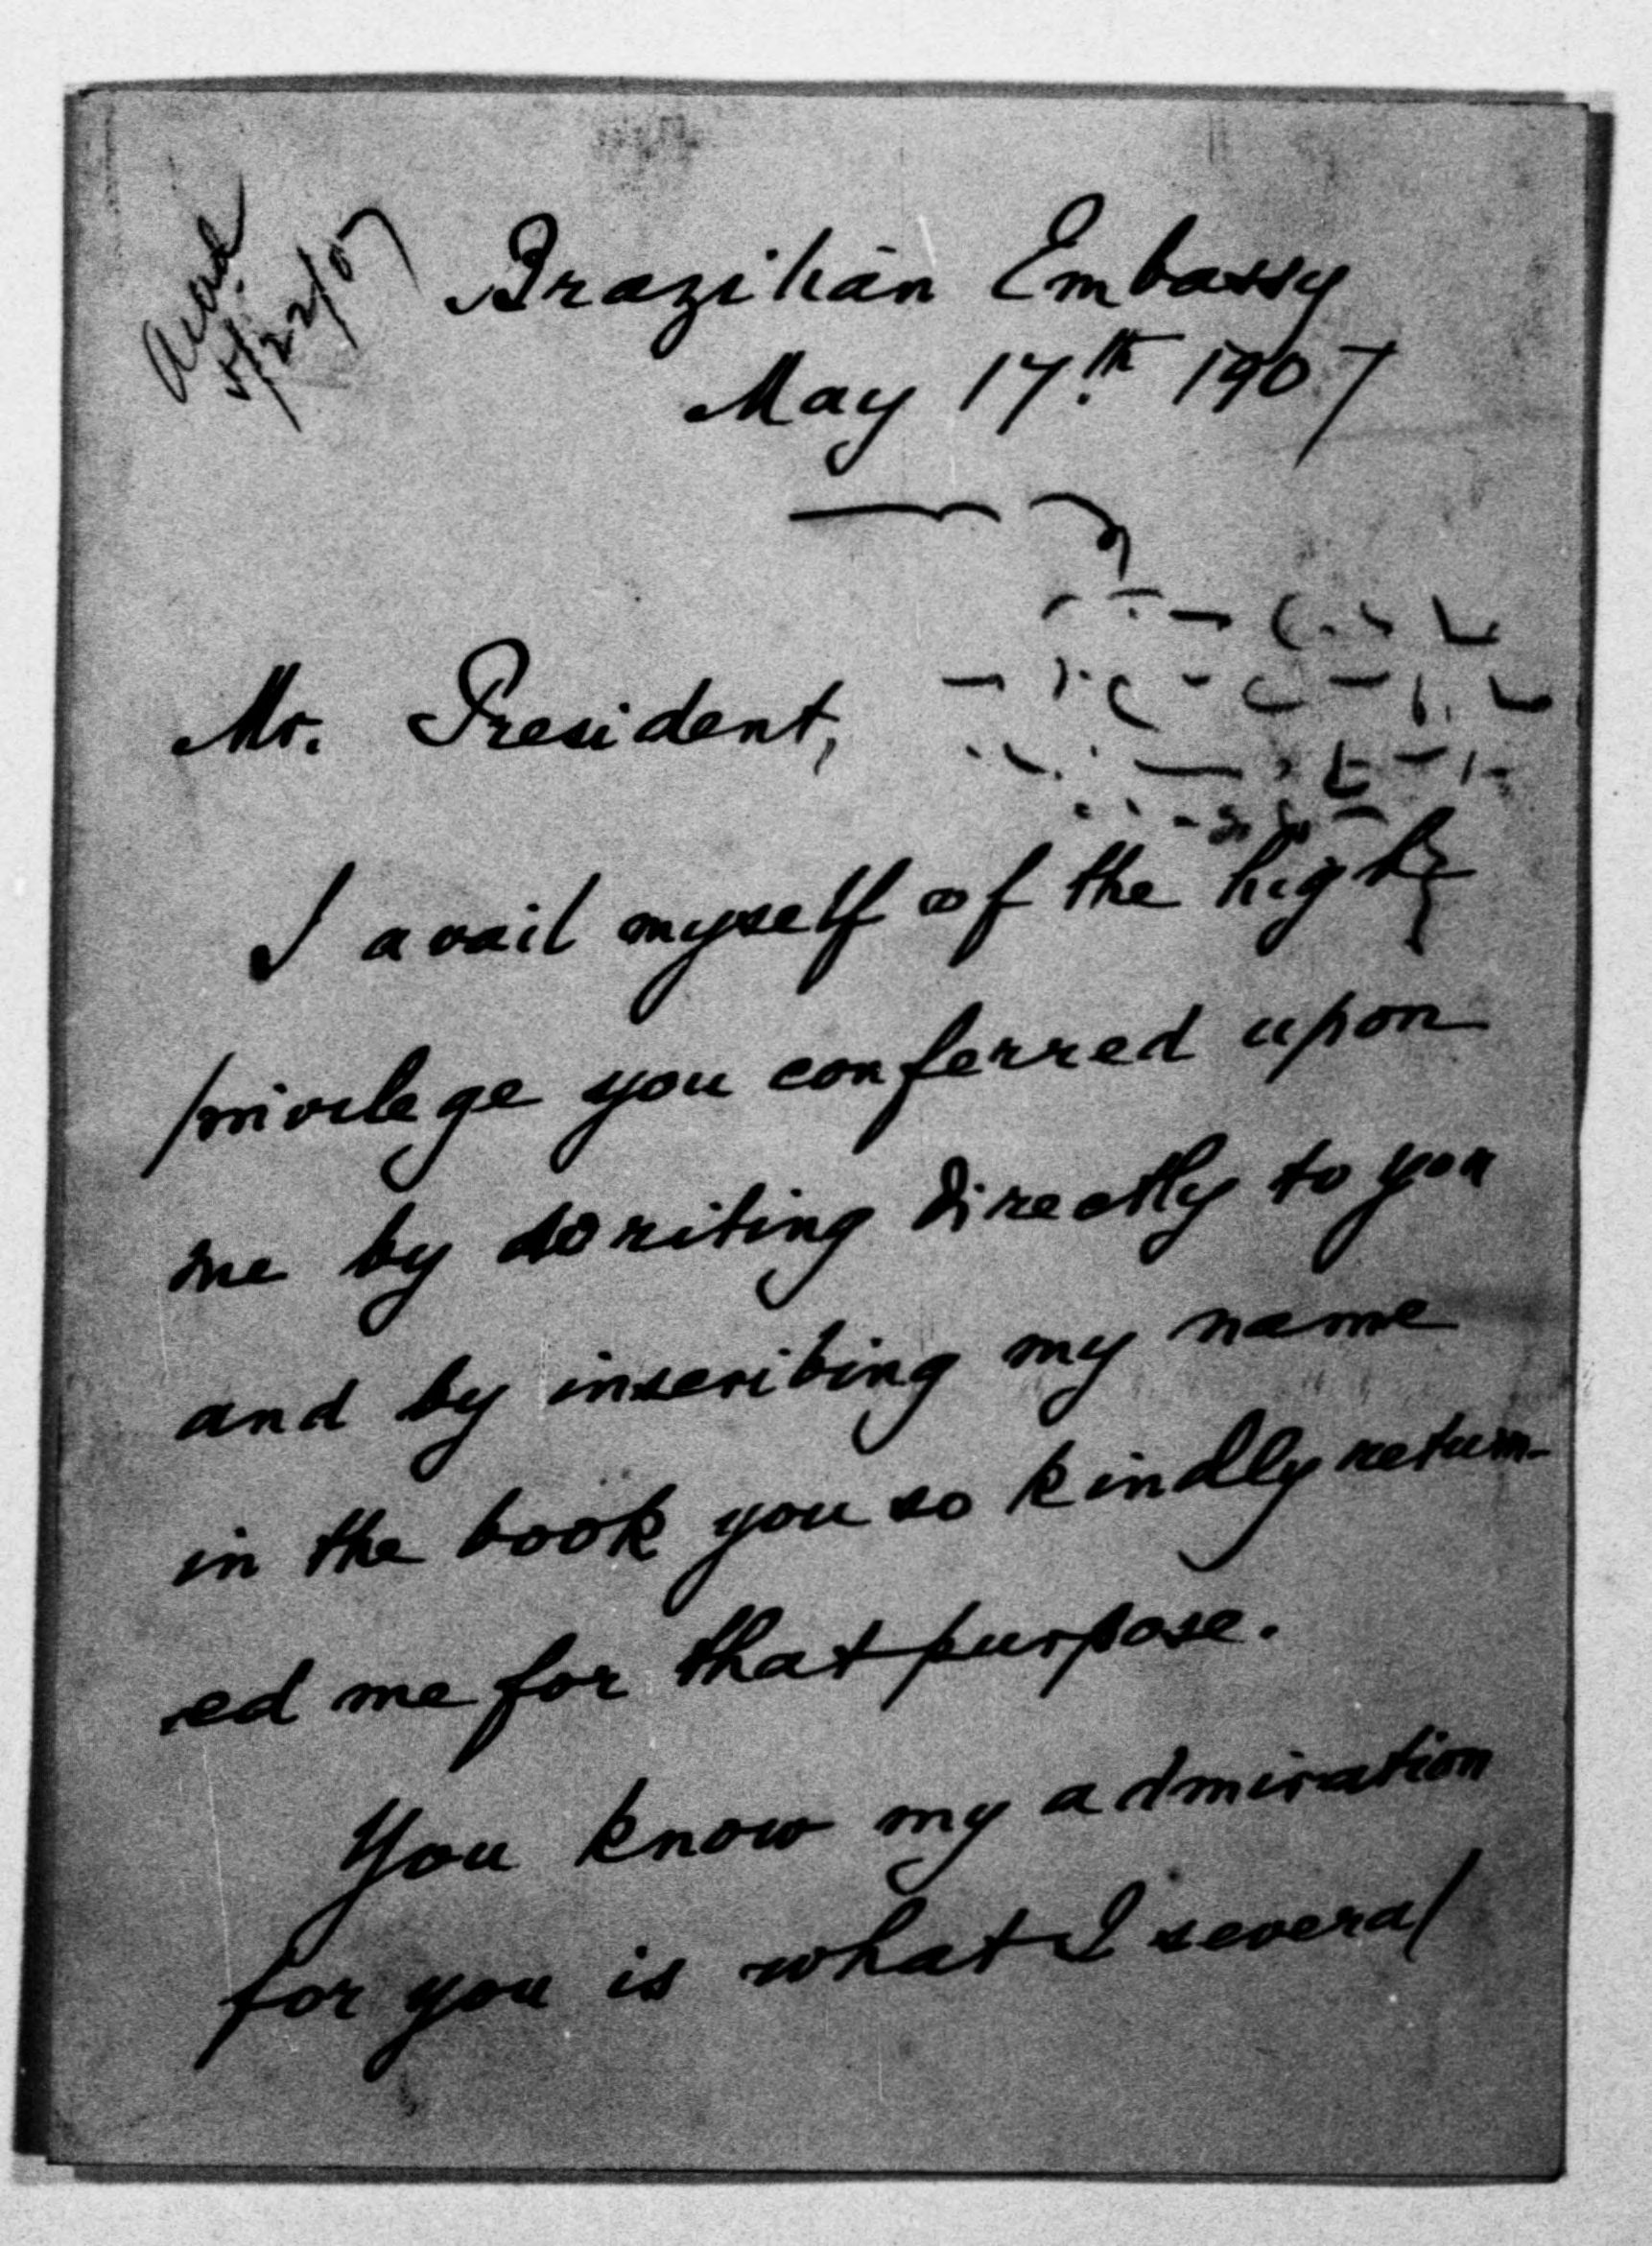 Ackd
5/22/07
Brazilian Embassy
May 17th 1907
Mr. President,
I avail myself of the high
privilege you conferred upon
me by writing directly to you
and by inscribing my name
in the book you so kindly return-
ed me for that purpose.
You know my admiration
for you is what I several